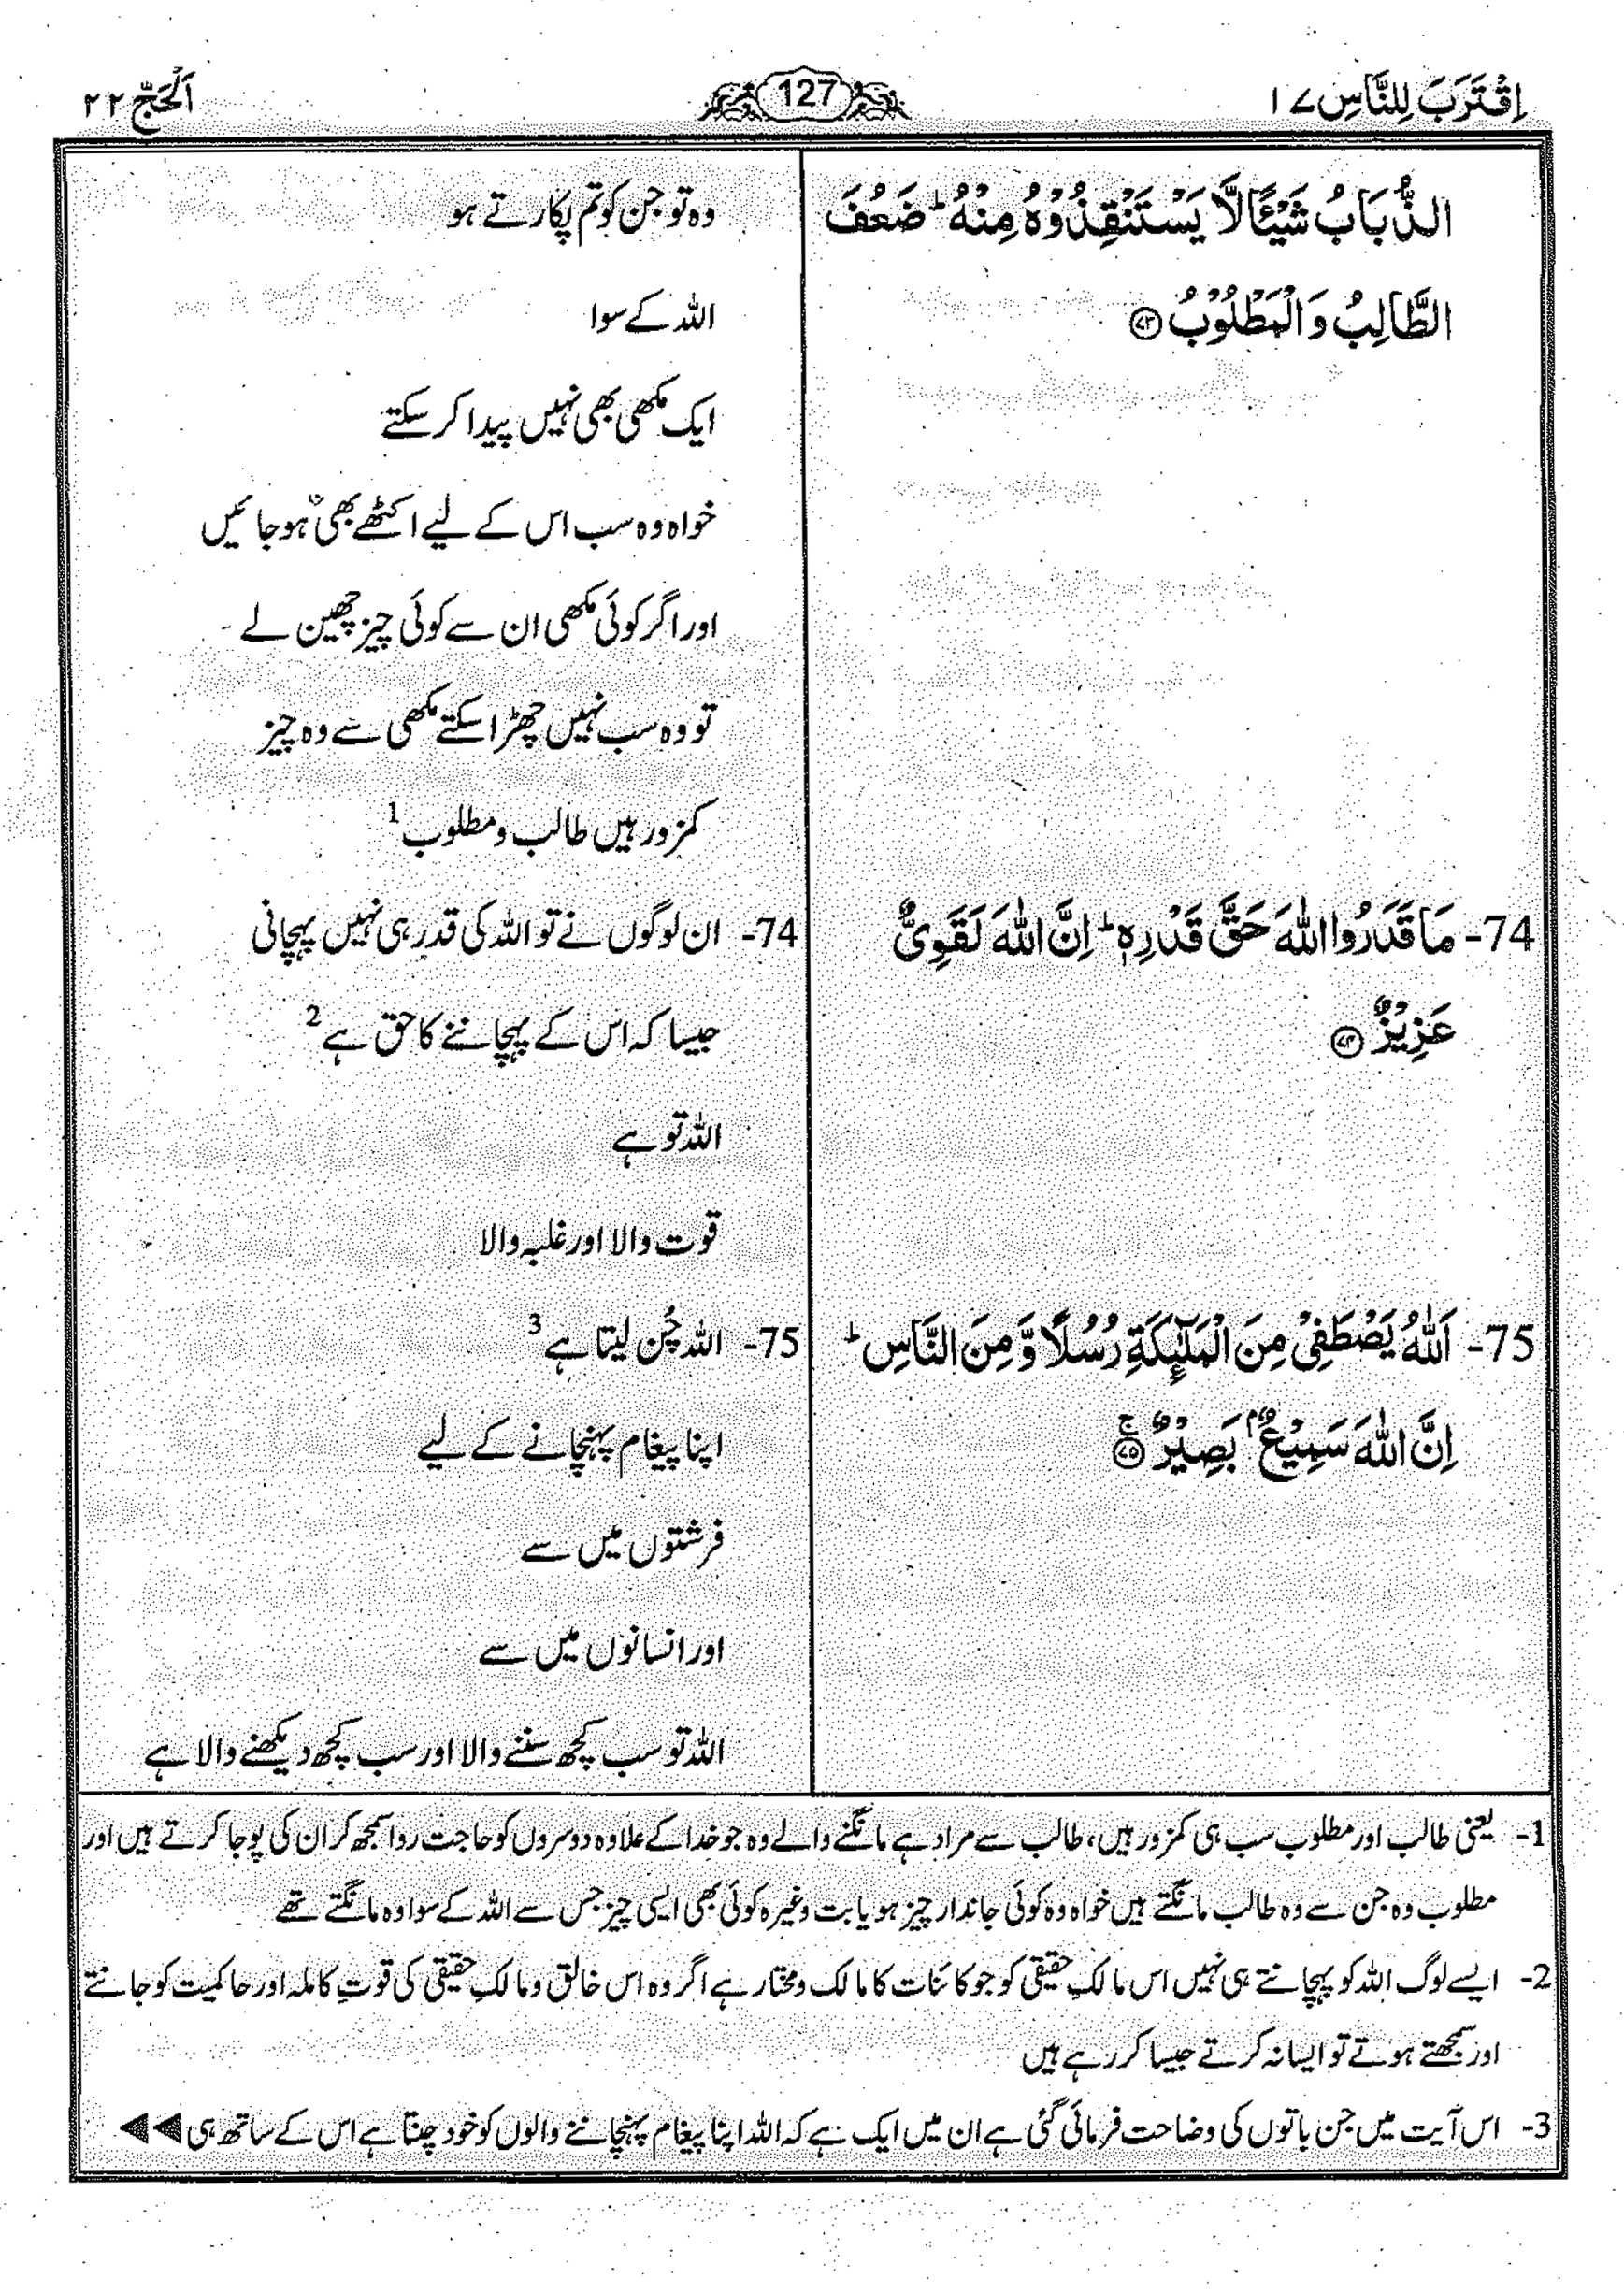 اِقْتَرَبَ لِلنَّاسِ ۱۷
127
اَلْحَجّ ۲۲
الذُّبَابُ شَيْئًا لَّا يَسْتَنْقِذُوْهُ مِنْهُ ؕ ضَعُفَ
الطَّالِبُ وَالْمَطْلُوْبُ ﴿۷۳﴾
74- مَا قَدَرُوا اللّٰهَ حَقَّ قَدْرِهٖ ؕ اِنَّ اللّٰهَ لَقَوِيٌّ
عَزِيْزٌ ﴿۷۴﴾
75- اَللّٰهُ يَصْطَفِيْ مِنَ الْمَلٰٓئِكَةِ رُسُلًا وَّ مِنَ النَّاسِ ؕ
اِنَّ اللّٰهَ سَمِيْعٌۢ بَصِيْرٌ ﴿۷۵﴾ ۚ
وہ تو جن کو تم پکارتے ہو
اللہ کے سوا
ایک مکھی بھی نہیں پیدا کر سکتے
خواہ وہ سب اس کے لیے اکٹھے بھی ہو جائیں
اور اگر کوئی مکھی ان سے کوئی چیز چھین لے -
تو وہ سب نہیں چھڑا سکتے مکھی سے وہ چیز
کمزور ہیں طالب و مطلوب 1
74- ان لوگوں نے تو اللہ کی قدر ہی نہیں پہچانی
جیسا کہ اس کے پہچاننے کا حق ہے 2
اللہ تو ہے
قوت والا اور غلبہ والا
75- اللہ چُن لیتا ہے 3
اپنا پیغام پہنچانے کے لیے
فرشتوں میں سے
اور انسانوں میں سے
اللہ تو سب کچھ سننے والا اور سب کچھ دیکھنے والا ہے
1- یعنی طالب اور مطلوب سب ہی کمزور ہیں، طالب سے مراد ہے مانگنے والے وہ جو خدا کے علاوہ دوسروں کو حاجت روا سمجھ کر ان کی پوجا کرتے ہیں اور
مطلوب وہ جن سے وہ طالب مانگتے ہیں خواہ وہ کوئی جاندار چیز ہو یا بت وغیرہ کوئی بھی ایسی چیز جس سے اللہ کے سوا وہ مانگتے تھے
2- ایسے لوگ اللہ کو پہچانتے ہی نہیں اس مالکِ حقیقی کو جو کائنات کا مالک و مختار ہے اگر وہ اس خالق و مالکِ حقیقی کی قوتِ کاملہ اور حاکمیت کو جانتے
اور سمجھتے ہوتے تو ایسا نہ کرتے جیسا کر رہے ہیں
3- اس آیت میں جن باتوں کی وضاحت فرمائی گئی ہے ان میں ایک ہے کہ اللہ اپنا پیغام پہنچاننے والوں کو خود چنتا ہے اس کے ساتھ ہی ◀◀